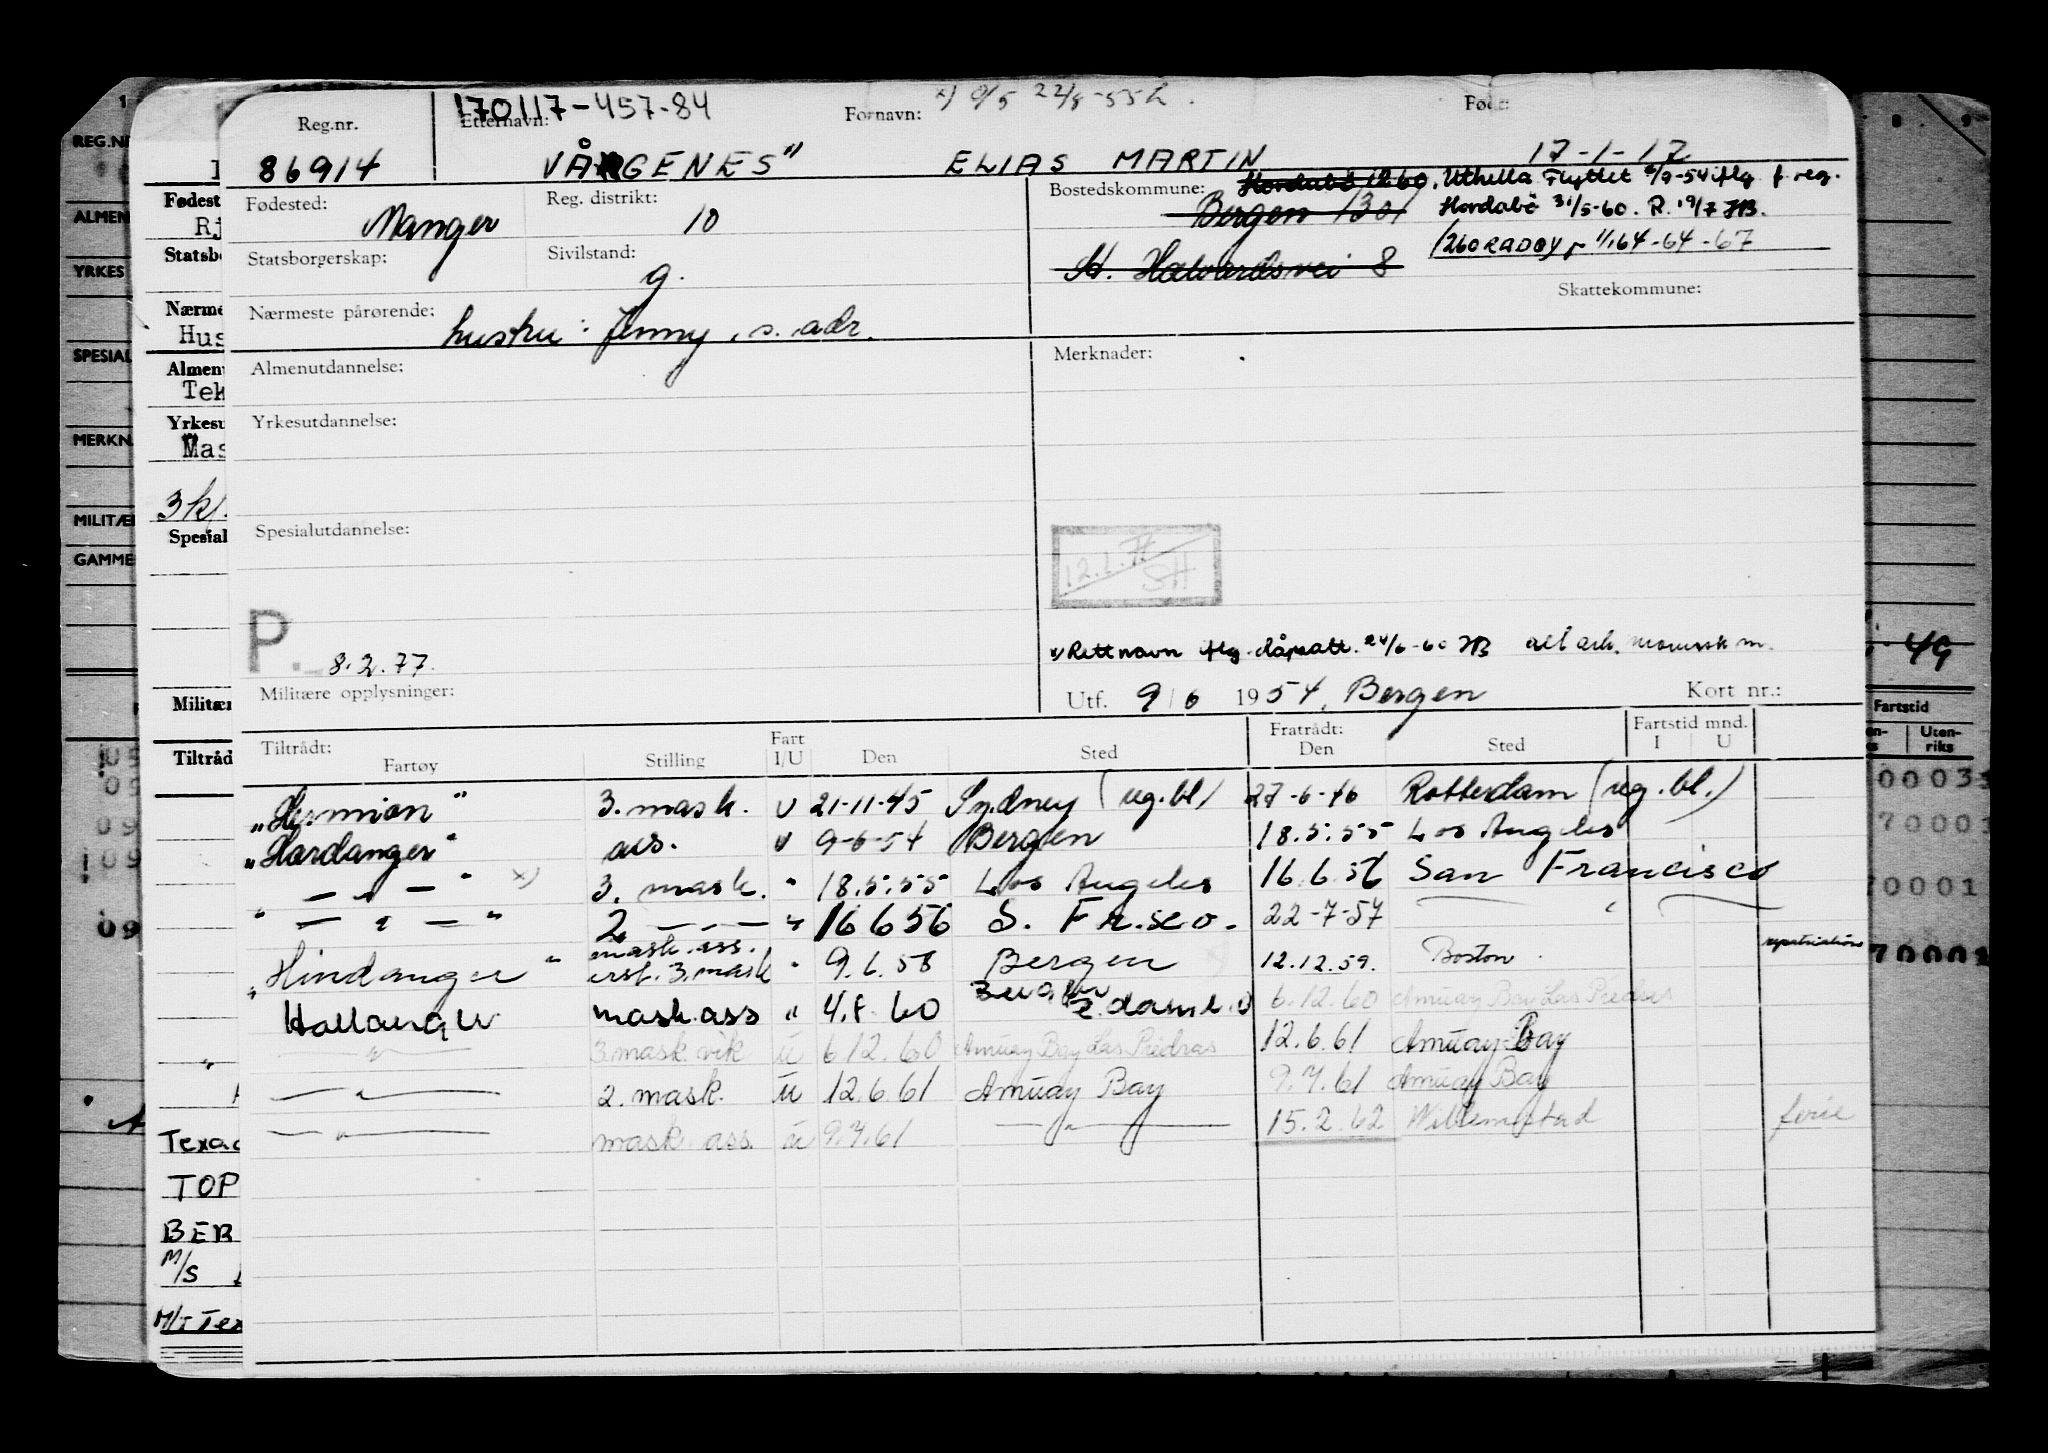 170117-457-84
Reg.nr. Etternavn: Fornavn: Født:
86914 VÅGENES" ELIAS MARTIN 17-1-17
Fødested: Reg. distrikt: Bostedskommune:
Manger 10 Bergen 1301
Hordabø 31/5-60. R. 19/7 HB.
1260 RADØY 1/1 64-64-67
Statsborgerskap: Sivilstand:
g. St. Halvardsvei 8
Skattekommune:
Nærmeste pårørende:
hustru: Jenny, s. adr.
Almenutdannelse: Merknader:
Yrkesutdannelse:
Spesialutdannelse:
12.1.77 SH
P. 8.2.77
x) Rett navn iflg. dåpsatt. 24/6-60 HB
Utf. 9/6 1954, Bergen Kort nr.:
Militære opplysninger:
Tiltrådt: Fart Fratrådt: Fartstid mnd.
Fartøy Stilling I/U Den Sted Den Sted I U
"Hermion" 3. mask. U 21-11-45 Sydney (reg.bl) 27-6-46 Rotterdam (reg.bl.)
"Hardanger" ass. U 9-6-54 Bergen 18.5.55 Los Angeles
— " — x) 3. mask. " 18.5.55 Los Angeles 16.6.56 San Francisco
" — " — " 2 — " — " 16 6 56 S. Fr.sco. 22-7-57 — " —
mask. ass.
"Hindanger" erst. 3. mask " 9.6.58 Bergen 12.12.59. Boston repatriation
Hallanger mask.ass " 4.8.60 6.12.60 Amuay Bay Las Piedras
— " — 3. mask vik U 6.12.60 Amuay Bay Las Piedras 12.6.61 Amuay Bay
— " — 2. mask. U 12.6.61 Amuay Bay 9.7.61 Amuay Bay
— " — mask. ass. U 9.7.61 — " — 15.2.62 Willemstad ferie
REG.NR
ALMEN
YRKES
SPESIAL
MERKN
MILITÆR
GAMME
Fødest
Statsbo
Nærme
Hus
Almen
Tek
Yrkesu
Mas
3 kl.
Spesial
Militær
Tiltråd
Texac
TOP
BER
M/S
M/T Tex
49
Fartstid
Uten-
riks